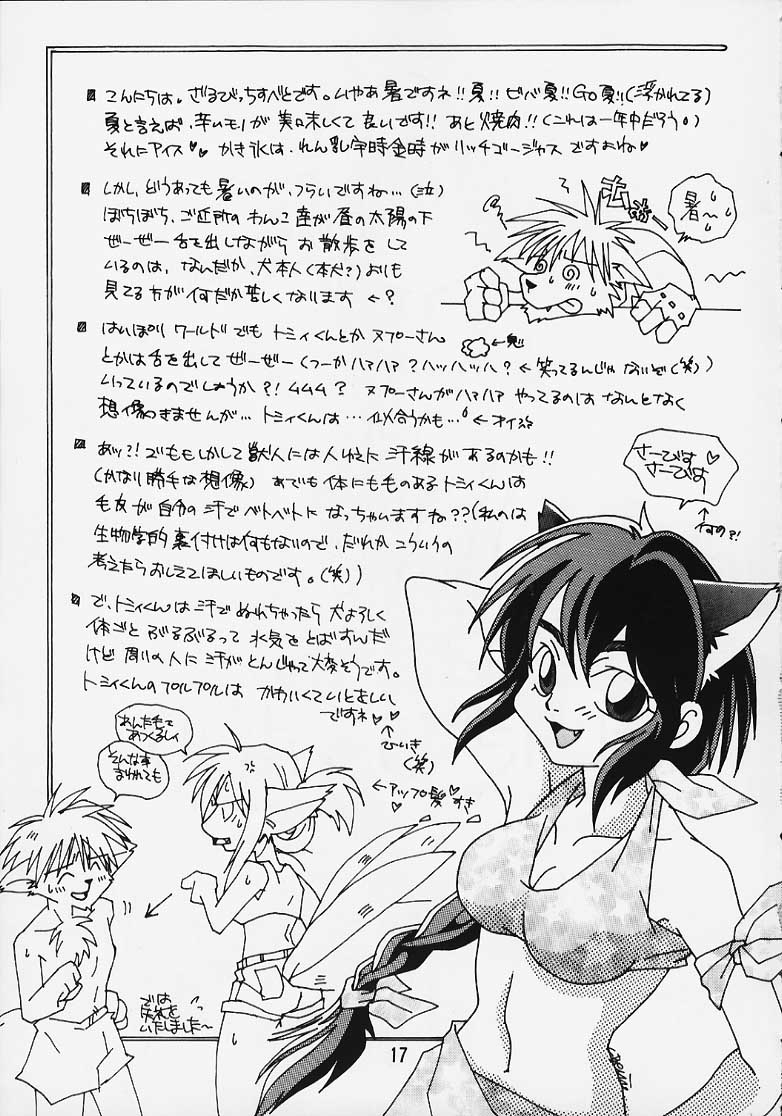 こんにちは。ざるびっちすべとです。いやあ暑ですネ!!夏!!ビバ夏!!Go夏!!(浮かれてる)
夏と言えば、辛いモノが美味しくて良いです!!あと焼肉!!(これは一年中だろう。)
それにアイス♡♡かき氷は、れん乳宇時金時がリッチゴージャスですよね♡
しかし、どうあっても暑いのが、つらいですね…(泣)
ぼちぼち、ご近所のわんこ達が昼の太陽の下
ぜーぜー舌を出しながらお散歩をして
いるのは、なんだか、犬本人(本犬?)よりも
見てる方が何だか苦しくなります ←?
暑〜
はいぱぁワールドでもトミィくんとかヌプーさん
とかは舌を出してぜーぜー(つーかハァハァ?ハッハッハ?←笑ってるんじゃないぞ(笑))
いっているのでしょうか?!ムムム?ヌプーさんがハァハァやってるのはなんとなく
想像つきませんが…トミィくんは…似合うかも…←オイ
あッ?!でももしかして獣人には人ゆえに汗線があるのかも!!
(かなり勝手な想像)あでも体にも毛のあるトミィくんは
毛皮が自分の汗でベトベトになっちゃいますね??(私のは
生物学的裏付けは何もないので、だれかこういうの
考えたらおしえてほしいものです。(笑))
さーびす♡
さーびす
↑何の?!
で、トミィくんは汗でぬれちゃったら犬よろしく
体ごとぶるぶるって水気をとばすんだ
けど周りの人に汗がとんじゃって大変そうです。
トミィくんのプルプルはかわいくていとおしい
ですネ♡♡
↑ひいき(笑)
あんた毛で
あつくるしイ
そんな事
言われても
←アップ髪♡すき
では
失礼を
いたしました〜
17